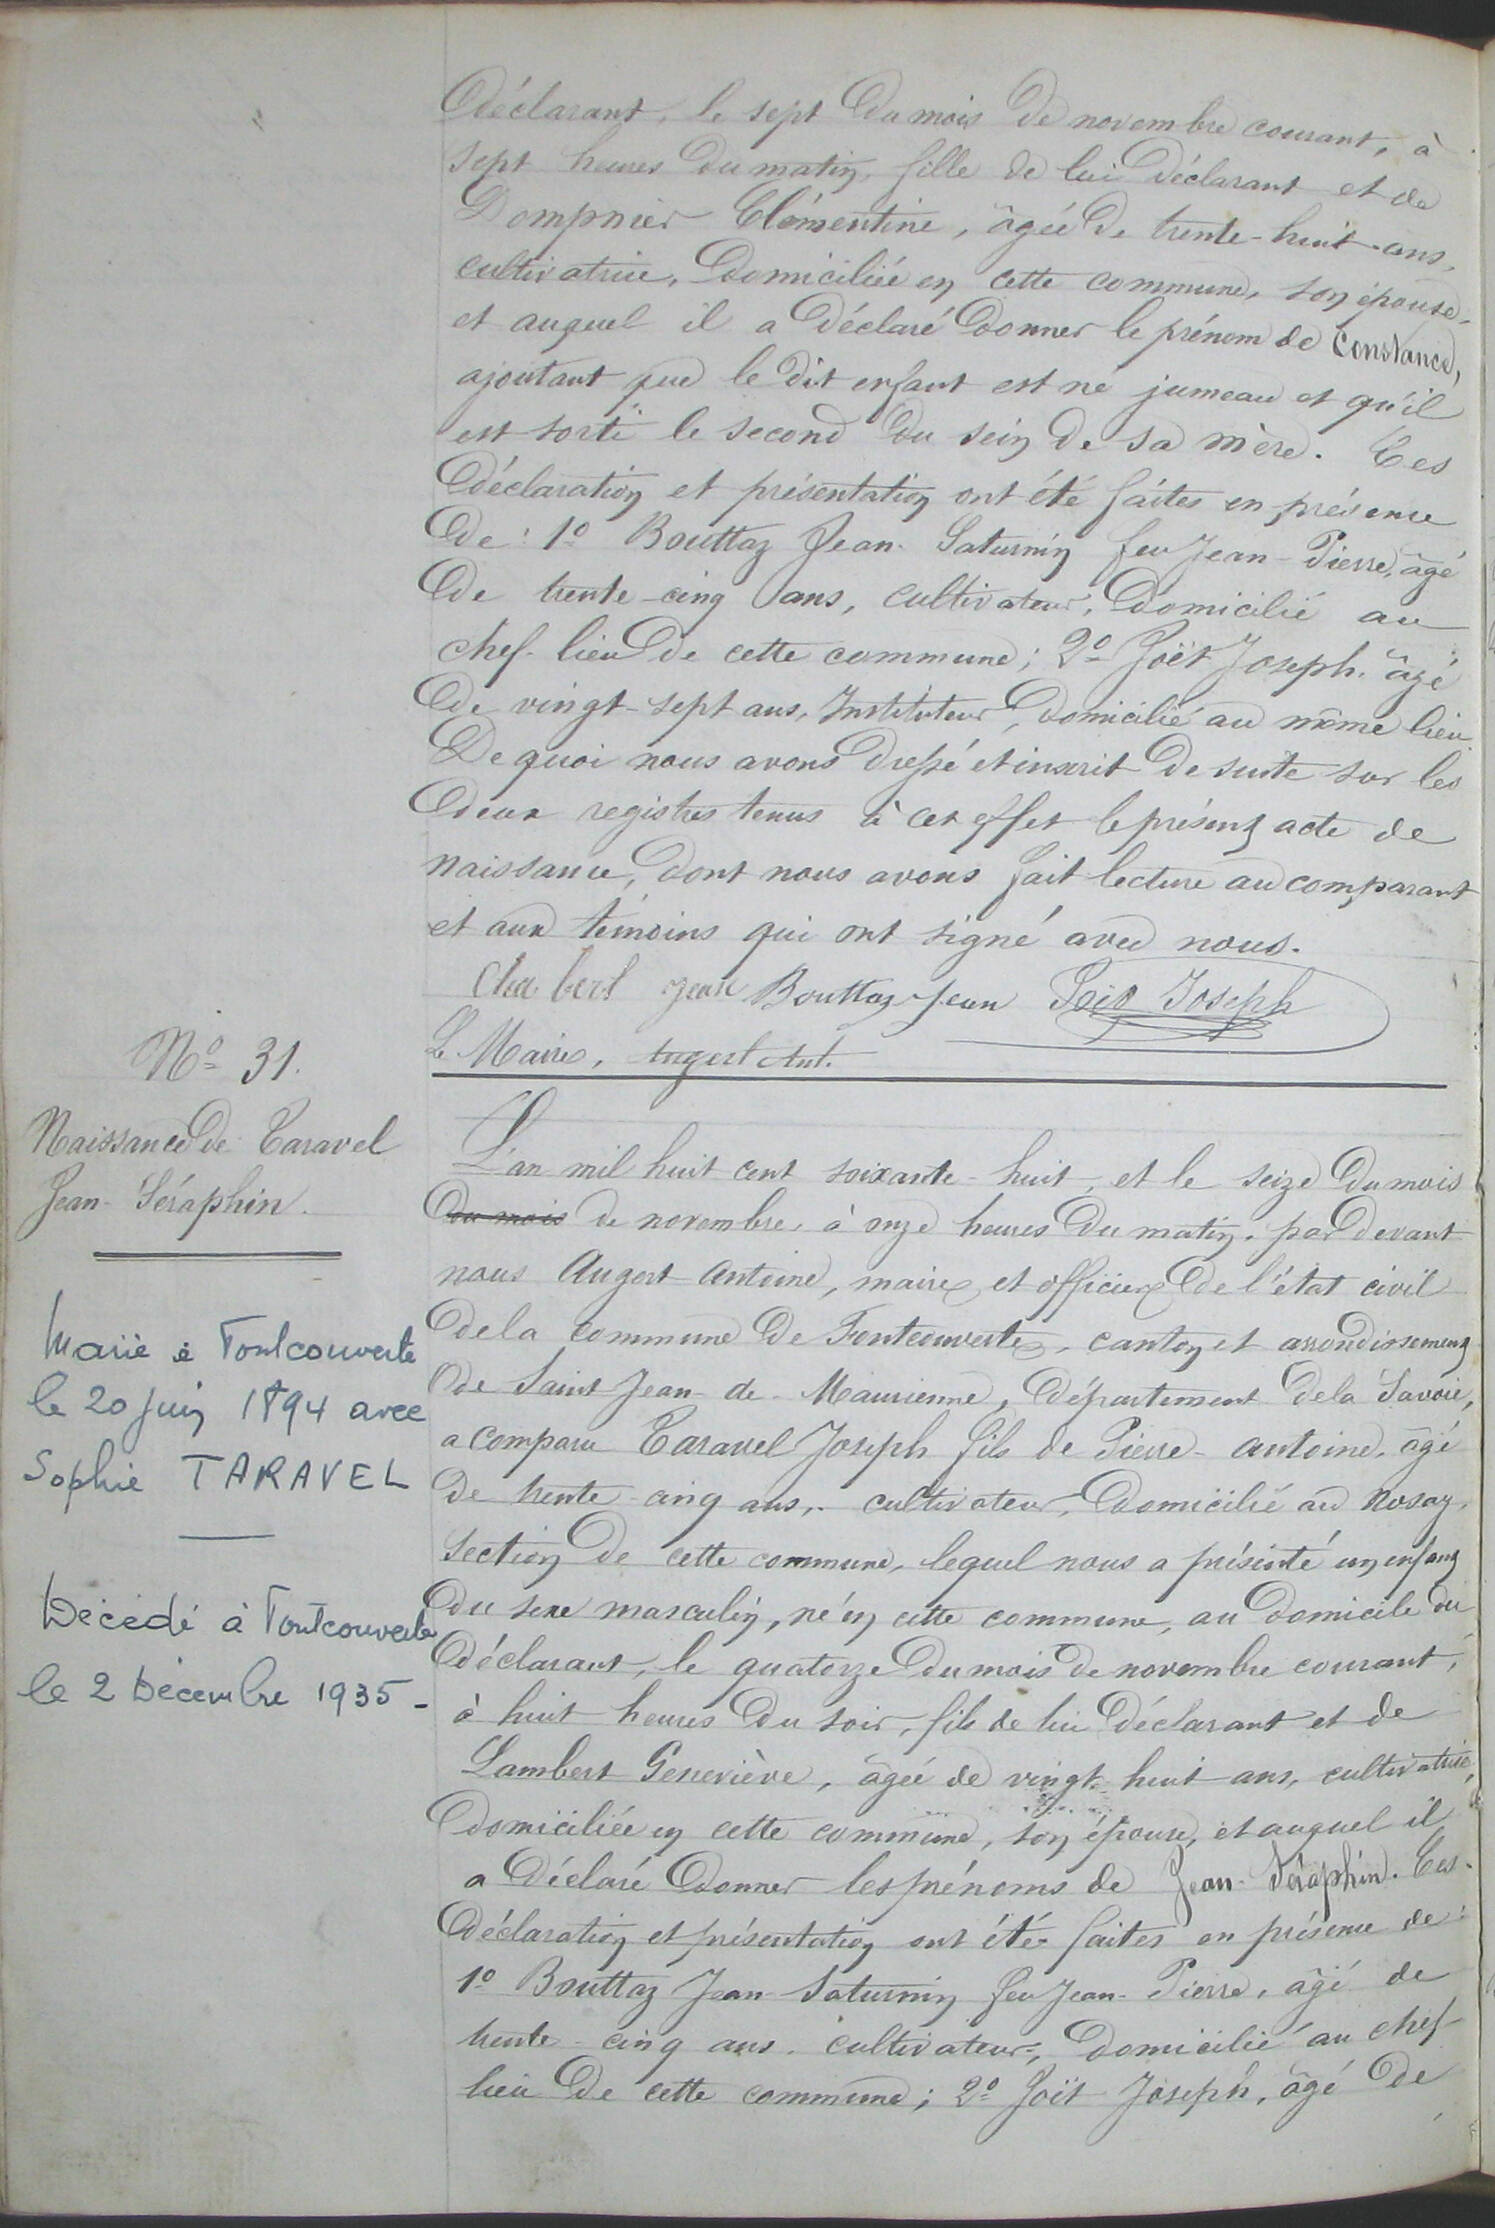 Déclarant, le sept du mois de novembre courant, à
sept heures du matin, fille de lui déclarant et de
Dompnier Clémentine, âgée de trente-huit ans,
cultivatrice, domiciliée en cette commune, son épouse,
et auquel il a déclaré donner le prénom de Constance,
ajoutant que le dit enfant est né jumeau et qu'il
est sorti le second du sein de sa mère. Ces
déclaration et présentation ont été faites en présence
de : 1º Bouttaz Jean-Saturnin feu Jean-Pierre, âgé
de trente-cinq ans, cultivateur, domicilié au
chef-lieu de cette commune ; 2º Joët Joseph, âgé
de vingt-sept ans, Instituteur, domicilié au même lieu.
De quoi nous avons dressé et inscrit de suite sur les
deux registres tenus à cet effet le présent acte de
naissance, dont nous avons fait lecture au comparant
et aux témoins qui ont signé avec nous.
Chabert Jean Bouttaz Jean Joseph
Le Maire, Augert Ant.
Nº 31.
Naissance de Taravel
Jean-Séraphin.
Marié à Fontcouverte
le 20 Juin 1894 avec
Sophie TARAVEL
Décédé à Fontcouverte
le 2 Décembre 1935 -
L'an mil huit cent soixante-huit, et le seize du mois
du mois de novembre, à onze heures du matin, par devant
nous Augert Antoine, maire et officier de l'état civil
de la commune de Fontcouverte, canton et arrondissement
de Saint Jean-de-Maurienne, département de la Savoie,
a comparu Taravel Joseph fils de Pierre-Antoine, âgé
de trente-cinq ans, cultivateur, domicilié au Rosay,
section de cette commune, lequel nous a présenté un enfant
du sexe masculin, né en cette commune, au domicile du
déclarant, le quatorze du mois de novembre courant,
à huit heures du soir, fils de lui déclarant et de
Lambert Geneviève, âgée de vingt-huit ans, cultivatrice,
domiciliée en cette commune, son épouse, et auquel il
a déclaré donner les prénoms de Jean-Séraphin. Ces
déclaration et présentation ont été faites en présence de :
1º Bouttaz Jean-Saturnin feu Jean-Pierre, âgé de
trente-cinq ans, cultivateur, domicilié au chef-
lieu de cette commune ; 2º Joët Joseph, âgé de